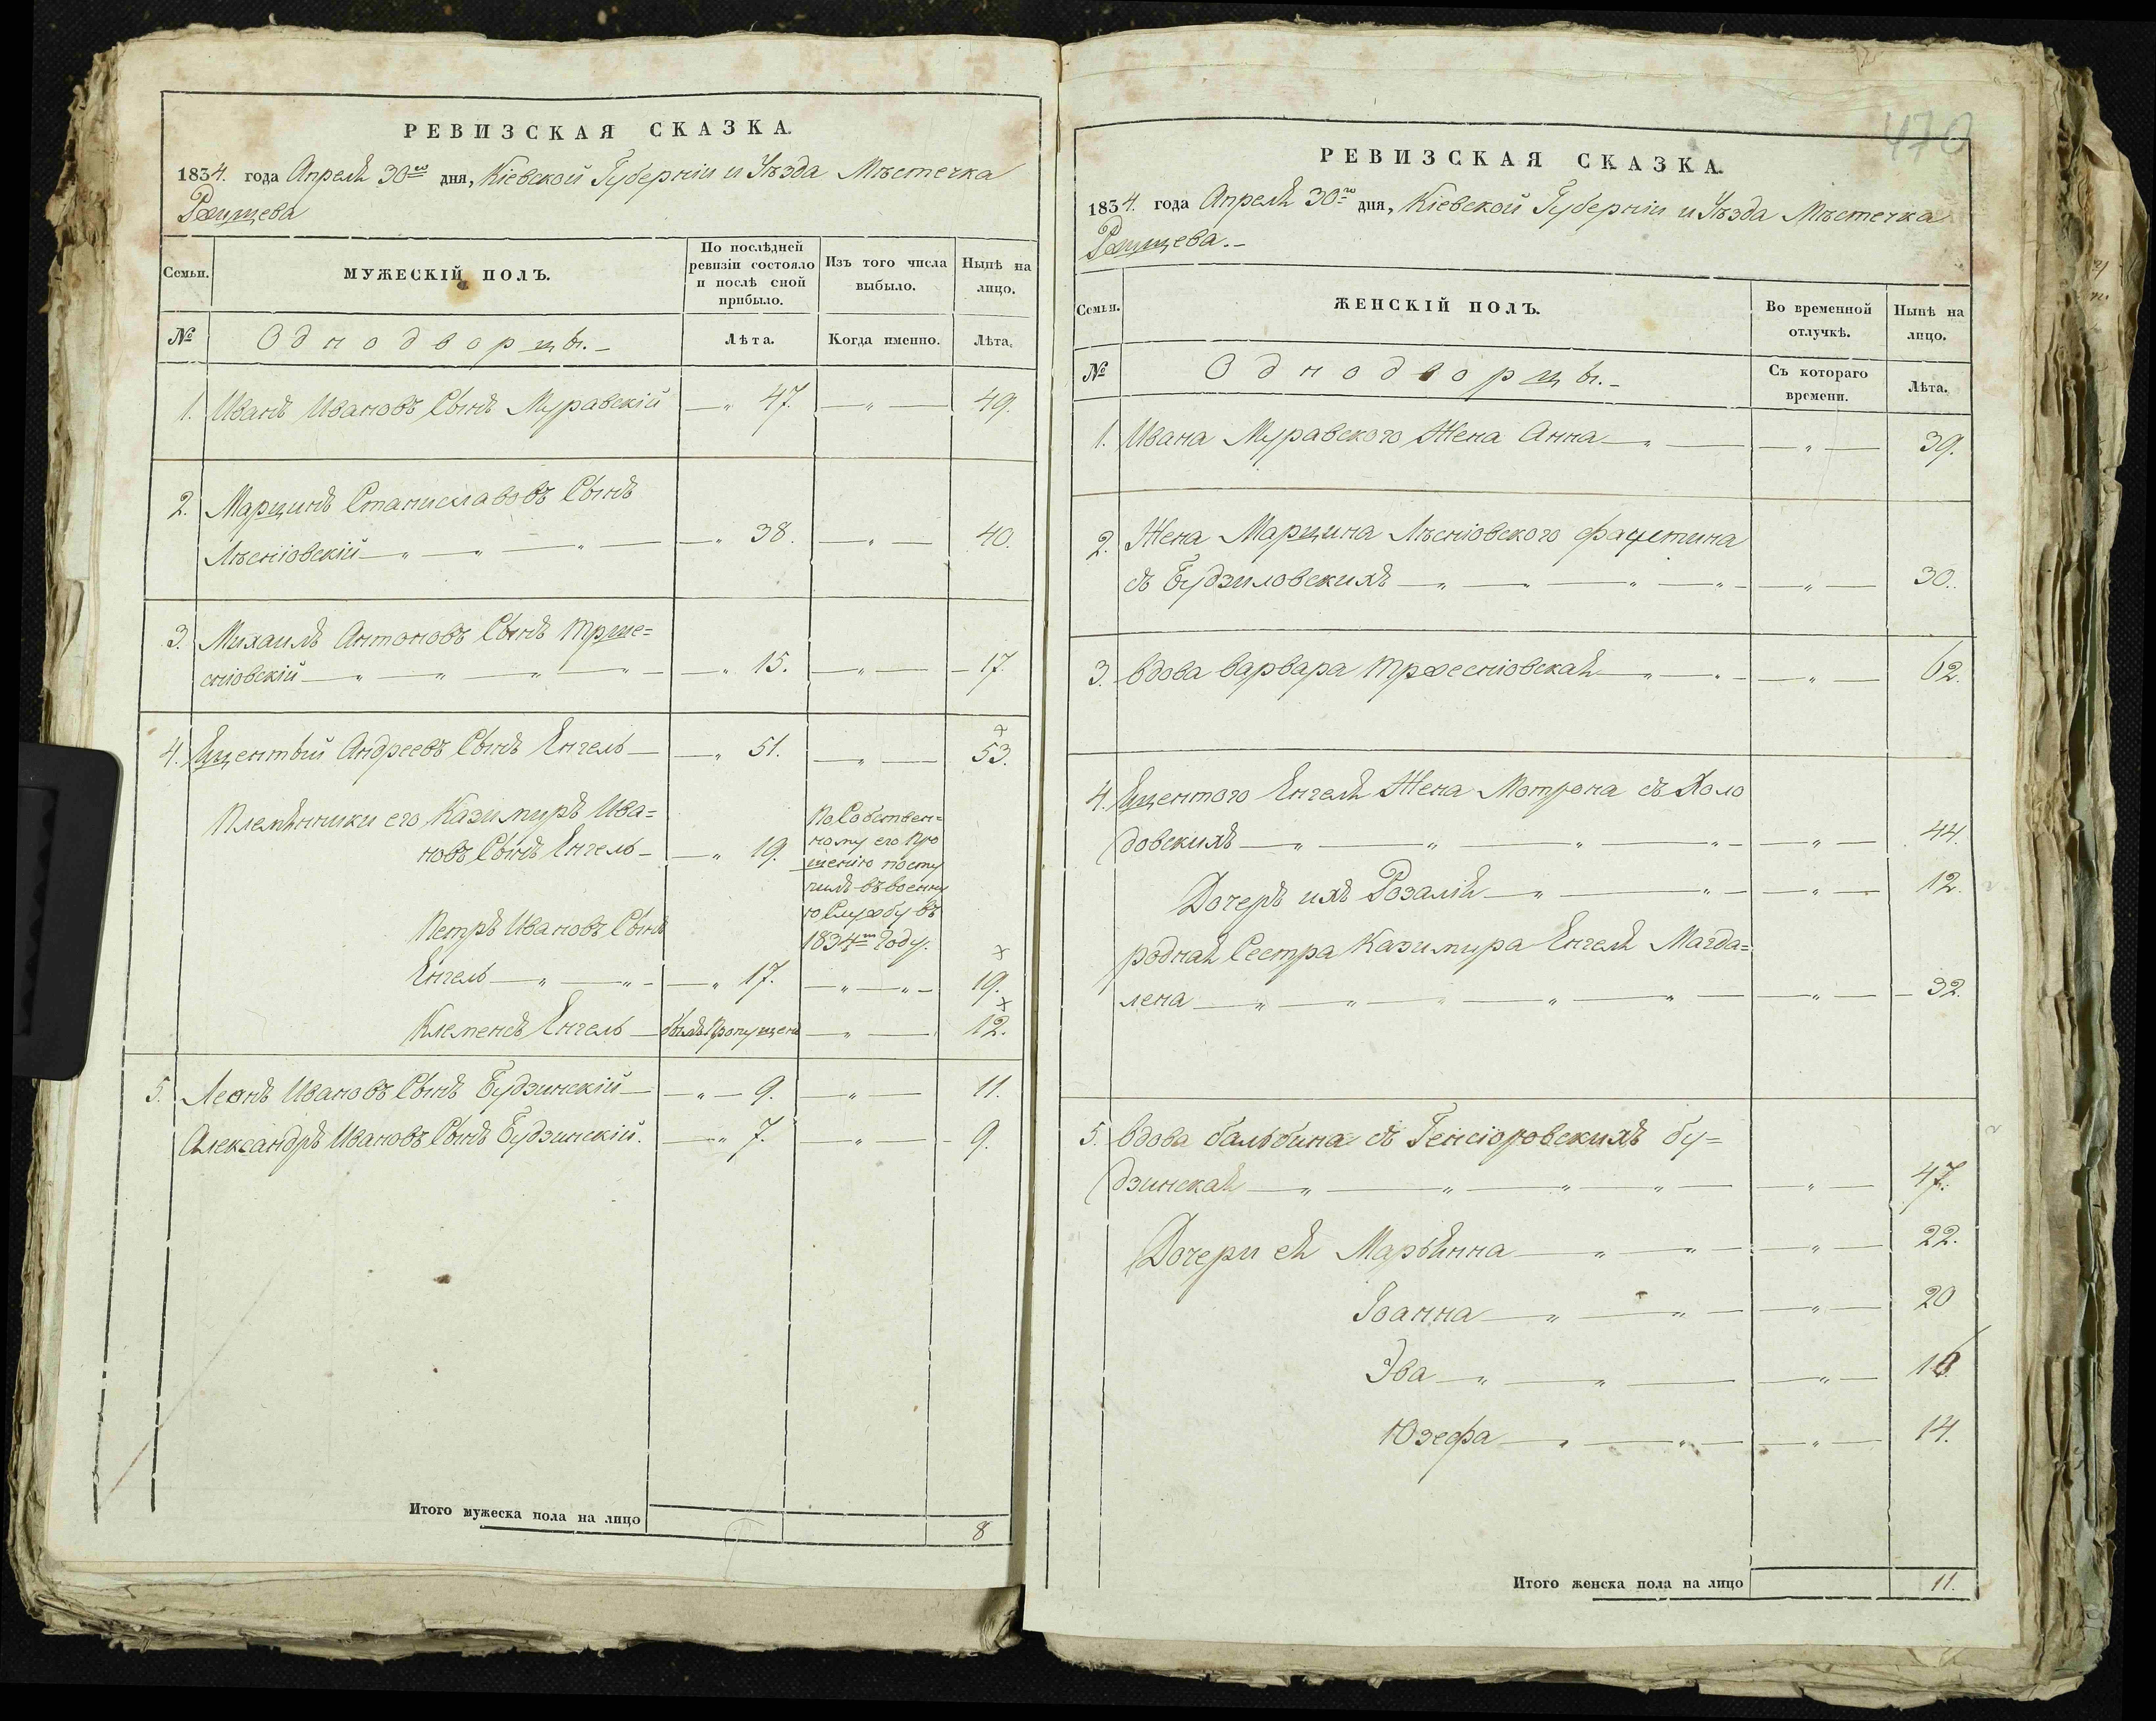 РЕВИЗСКАЯ СКАЗКА.
1834. года Апреля 30го дня, Кіевской Губерніи и Уѣзда Мѣстечка
Ржищева
Семьи.
МУЖЕСКІЙ ПОЛЪ.
По послѣдней ревизіи состояло и послѣ сной прибыло.
Изъ того числа выбыло.
Нынѣ на лицо.
№
Однодворцы.-
Лѣта.
Когда именно.
Лѣта.
1. Иванъ Ивановъ Сынъ Муравскій — „ 47. — „ — 49.
2. Марцинъ Станиславовъ Сынъ
Лѣсніовскій — „ — „ — „ — — „ 38. — „ — 40.
3. Михаилъ Антоновъ Сынъ Трже=
сніовскій — „ — „ — „ — „ - — „ 15. — „ — 17.
4. Яцентый Андреевъ Сынъ Енгель — — „ 51. — „ — 53.
Племянники его Казимиръ Ива=
новъ Сынъ Енгель - — „ 19.
По Собствен=
ному его Про
шенію посту
пилъ въ военну
ю Службу въ
1834м Году.
Петръ Ивановъ Сынъ
Енгель — „ — „ - — „ 17. — „ — „ — 19.
Клеменсъ Енгель — былъ пропущенъ — „ — 12.
5. Леонъ Ивановъ Сынъ Будзинскій — — „ — 9. — „ — 11.
Александръ Ивановъ Сынъ Будзинскій. — „ 7. — „ — 9.
Итого мужеска пола на лицо 8
470
РЕВИЗСКАЯ СКАЗКА.
1834. года Апреля 30го дня, Кіевской Губерніи и Уѣзда Мѣстечка
Ржищева.-
Семьи.
ЖЕНСКІЙ ПОЛЪ.
Во временной отлучкѣ.
Нынѣ на лицо.
№
Однодворцы.-
Съ котораго времени.
Лѣта.
1. Ивана Муравского Жена Анна — „ — — „ — 39.
2. Жена Марцина Лѣсніовского Фаустина
съ Будзиловскихъ — „ — „ — „ — „ - — „ — 30.
3. Вдова Варвара Тржесніовская — „ — „ - — „ — 62.
4. Яцентого Енгеля Жена Мотрона съ Холо
довскихъ — „ — „ — „ — „ - — „ — 44.
Дочеръ ихъ Розалія — „ — „ — — „ — 12.
родная Сестра Казимира Енгеля Магда=
лена — „ — „ — „ — „ — „ — — „ — 32.
5. Вдова Бальбина съ Генсіоровскихъ Бу=
дзинская — „ — „ — „ — „ — — „ — 47.
Дочери ея Марьянна — „ — „ - — „ — 22.
Іоанна — „ — „ — — „ — 20
Эва — „ — „ — — „ — 16
Юзефа — „ — „ — — „ — 14.
Итого женска пола на лицо 11.